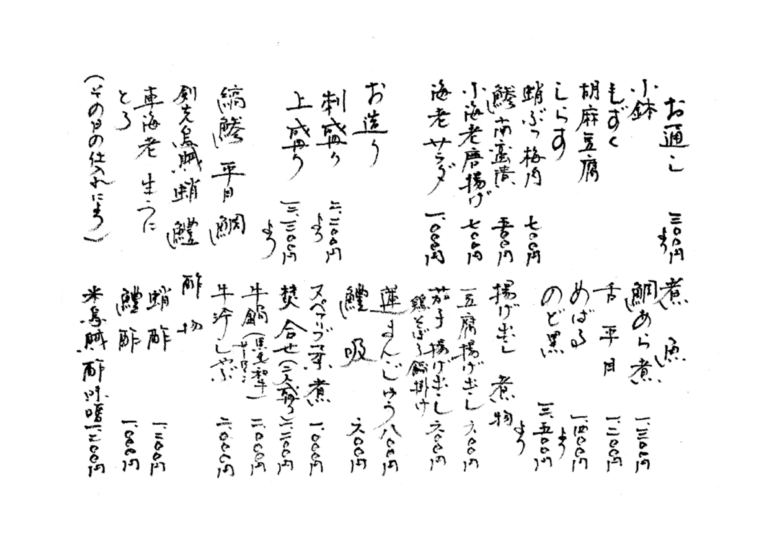 お通し 三〇〇円より
小鉢
もずく
胡麻豆腐
しらす
蛸ぶつ梅肉 七〇〇円
鯵南蛮漬 五〇〇円
小海老唐揚げ 七〇〇円
海老サラダ 一、〇〇〇円
お造り
刺盛り 二、二〇〇円より
上盛り 三、三〇〇円より
縞鯵 平目 鯛
剣先烏賊 蛸 鱧
車海老 生うに
とろ
(その日の仕入れによる)
煮魚
鯛あら煮 一、三〇〇円
舌平目 一、二〇〇円
めばる 一、四〇〇円より
のど黒 三、五〇〇円より
揚げ出し 煮物
豆腐揚げ出し 六〇〇円
茄子揚げ出し 六〇〇円
鶏そぼろ餡掛け
蓮まんじゅう 八〇〇円
鱧吸 六〇〇円
スペアリブ芋煮 一、〇〇〇円
焚合せ(二人盛り) 二、二〇〇円
牛鍋(黒毛和牛サーロイン) 二、〇〇〇円
牛冷しゃぶ 二、〇〇〇円
酢物
蛸酢 一、二〇〇円
鱧酢 一、〇〇〇円
米烏賊酢味噌 一、二〇〇円